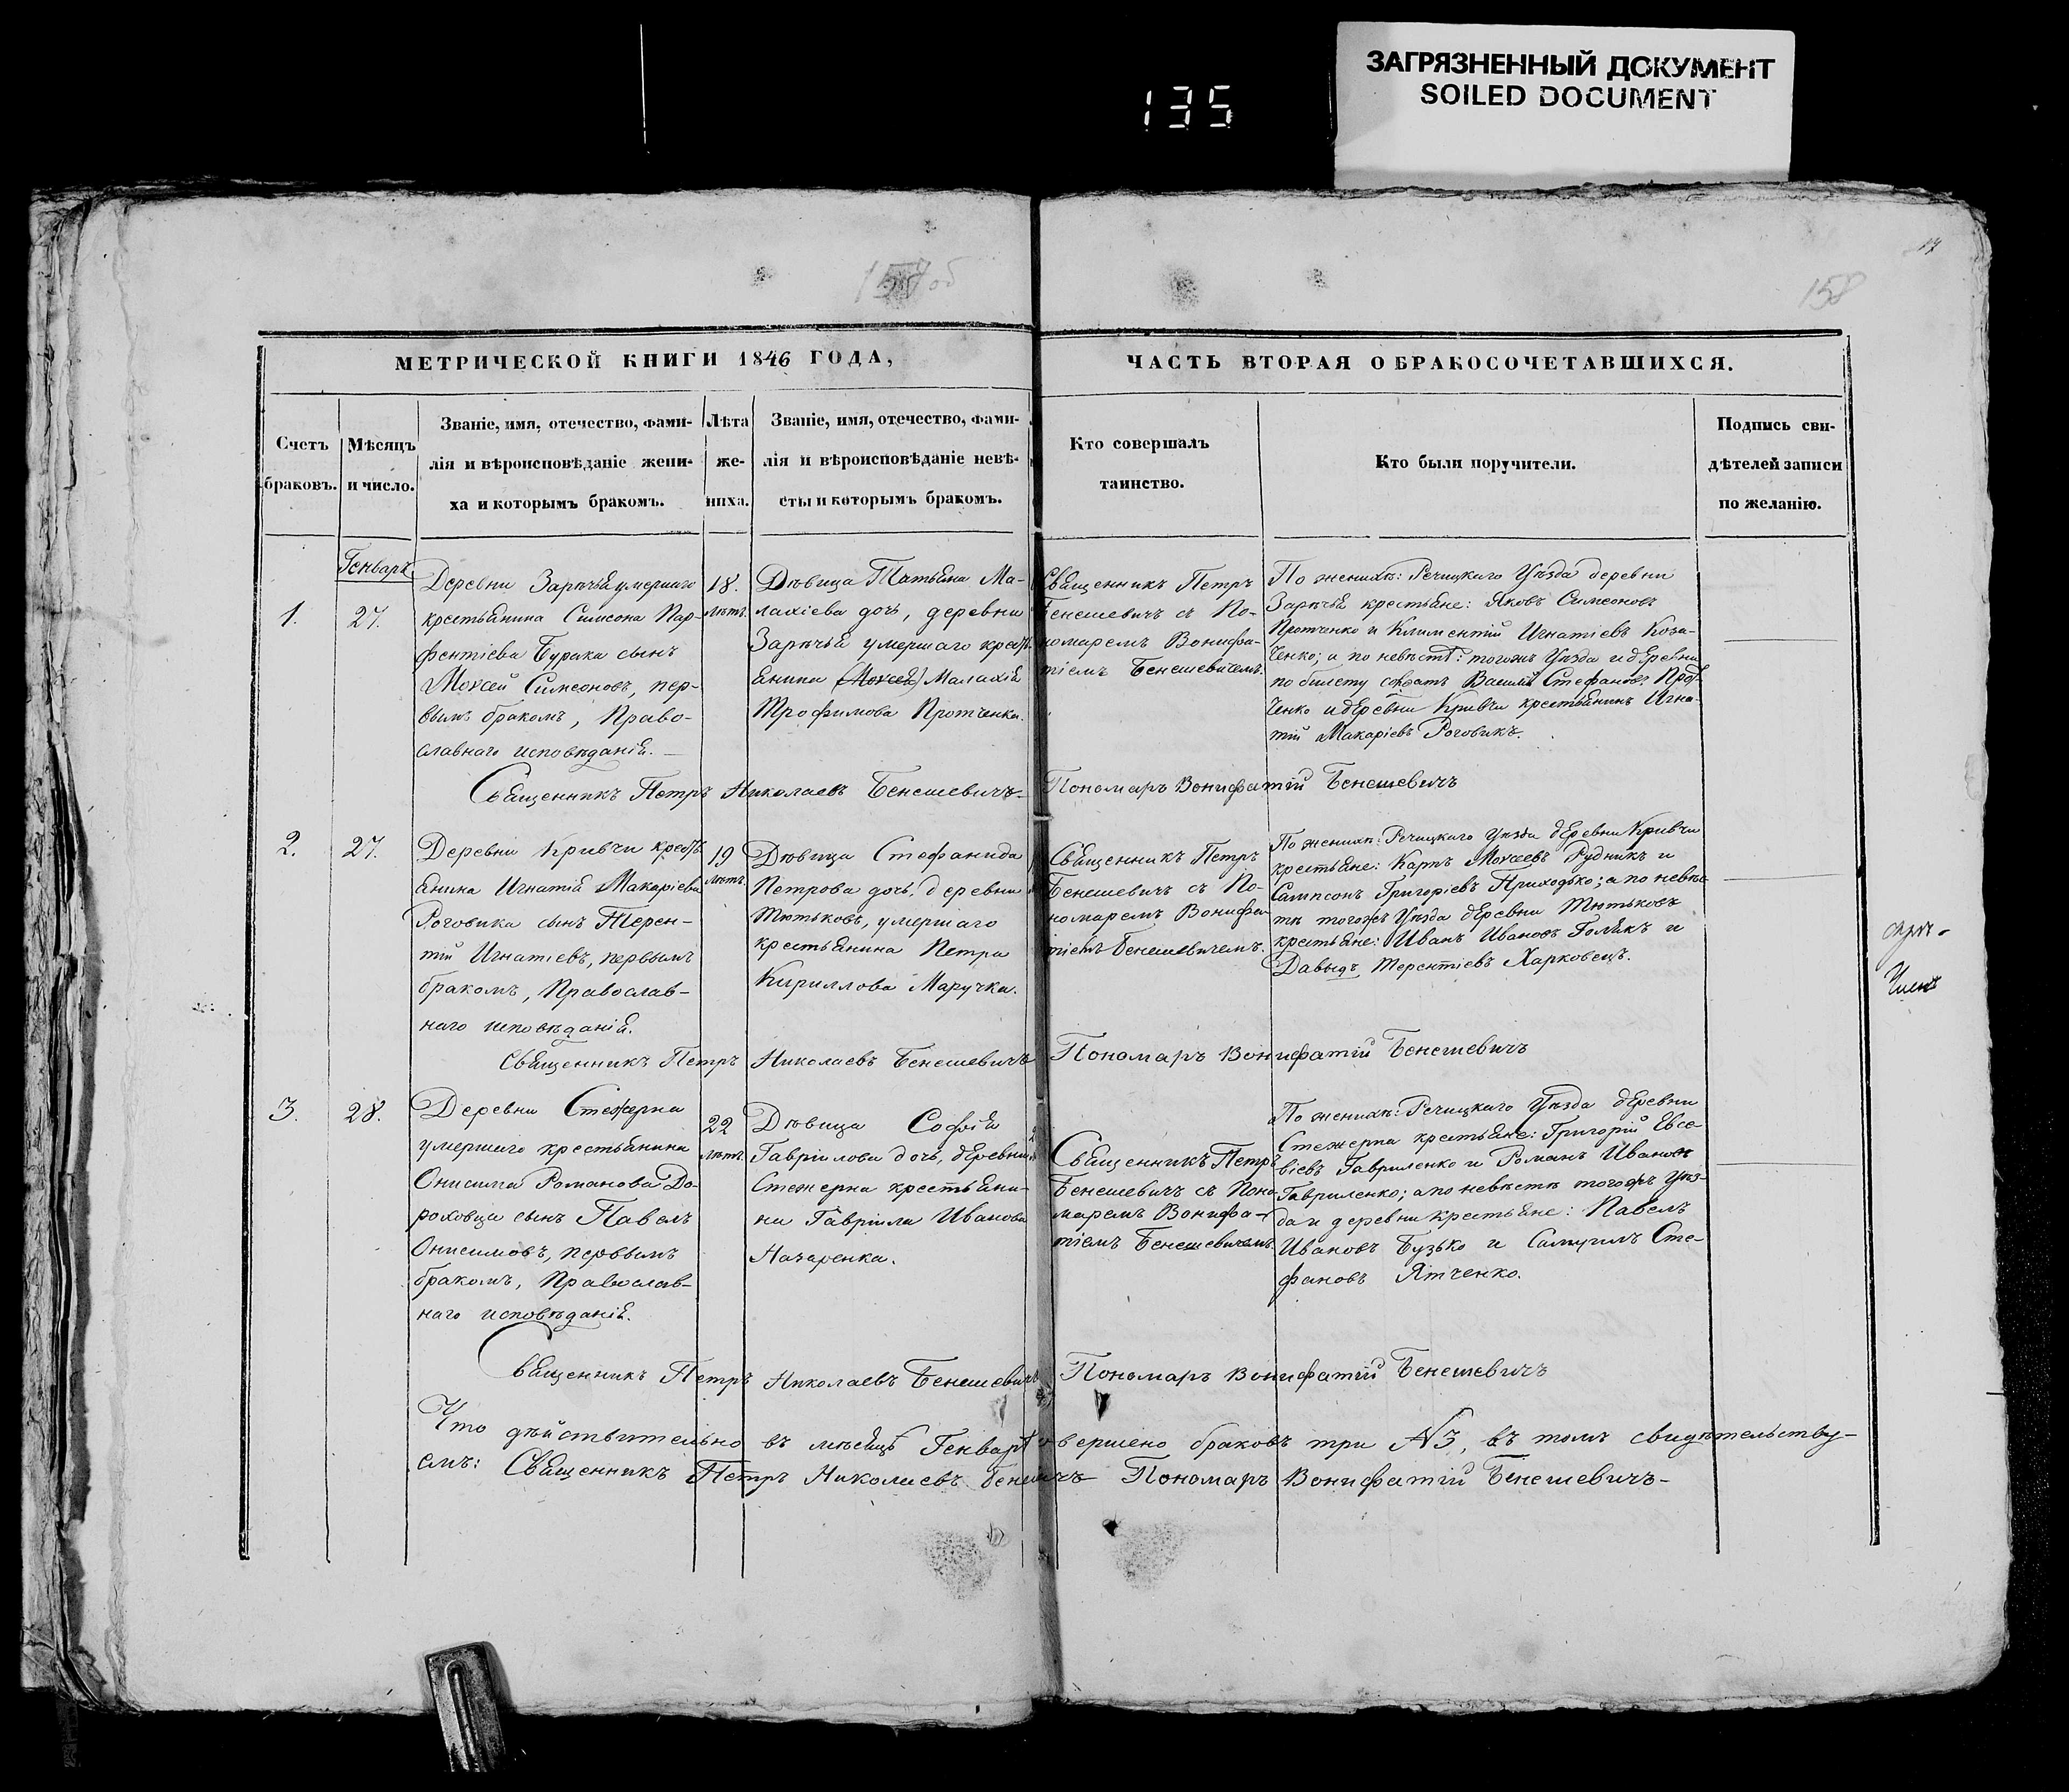 ЗАГРЯЗНЕННЫЙ ДОКУМЕНТ
SOILED DOCUMENT
135
158
МЕТРИЧЕСКОЙ КНИГИ 1846 ГОДА,
ЧАСТЬ ВТОРАЯ О БРАКОСОЧЕТАВШИХСЯ.
Счетъ
браковъ.
Мѣсяцъ
и число.
Званіе, имя, отечество, фами-
лія и вѣроисповѣданіе жени-
ха и которымъ бракомъ.
Лѣта
же-
ниха.
Званіе, имя, отечество, фами-
лія и вѣроисповѣданіе невѣ-
сты и которымъ бракомъ.
Кто совершалъ
таинство.
Кто были поручители.
Подпись сви-
дѣтелей записи
по желанію.
Генварь
1.
27.
Деревни Зарѣчья умершаго
крестьянина Симеона Пар-
фентіева Бурака сынъ
Моисей Симеоновъ, пер-
вымъ бракомъ, Право-
славнаго исповѣданія.
18.
лѣтъ.
Дѣвица Татьяна Ма-
лахіева дочь, деревни
Зарѣчья умершаго крест-
янина (Моисея) Малахія
Трофимова Протченка.
Священникъ Петръ
Бенешевичъ съ По-
номаремъ Вонифа-
тіемъ Бенешевичемъ.
По женихѣ: Речицкаго Уѣзда деревни
Зарѣчья крестьяне: Яковъ Симеоновъ
Протченко и Климентій Игнатіевъ Коза-
ченко; а по невѣстѣ: тогожъ Уѣзда и деревни
по билету солдатъ Василій Стефановъ Прот-
ченко и деревни Кривчи крестьянинъ Игна-
тій Макаріевъ Роговикъ.
Священникъ Петръ Николаевъ Бенешевичъ Пономаръ Вонифатій Бенешевичъ
2.
27.
Деревни Кривчи крест-
янина Игнатія Макаріева
Роговика сынъ Терен-
тій Игнатіевъ, первымъ
бракомъ, Православ-
наго исповѣданія.
19
лѣтъ.
Дѣвица Стефанида
Петрова дочь, деревни
Тютьковъ, умершаго
крестьянина Петра
Кириллова Маручка.
Священникъ Петръ
Бенешевичъ съ По-
номаремъ Вонифа-
тіемъ Бенешевичемъ.
По женихѣ: Речицкаго Уѣзда деревни Кривчи
крестьяне: Карпъ Моисеевъ Рудникъ и
Сампсонъ Григоріевъ Приходько; а по невѣс-
тѣ тогожъ Уѣзда деревни Тютьковъ
крестьяне: Иванъ Ивановъ Голикъ и
Давыдъ Терентіевъ Харковецъ.
Священникъ Петръ Николаевъ Бенешевичъ Пономаръ Вонифатій Бенешевичъ
3.
28.
Деревни Стежерна
умершаго крестьянина
Онисима Романова До-
роховца сынъ Павелъ
Онисимовъ, первымъ
бракомъ, Православ-
наго исповѣданія.
22
лѣтъ.
Дѣвица Софія
Гавріилова дочь, деревни
Стежерна крестьяни-
на Гавріила Иванова
Назаренка.
Священникъ Петръ
Бенешевичъ съ Поно-
маремъ Вонифа-
тіемъ Бенешевичемъ
По женихѣ: Речицкаго Уѣзда деревни
Стежерна крестьяне: Григорій Евсе-
віевъ Гавриленко и Романъ Ивановъ
Гавриленко; а по невѣстѣ тогожъ Уѣз-
да и деревни крестьяне: Павелъ
Ивановъ Бузько и Самуилъ Сте-
фановъ Ятченко.
Священникъ Петръ Николаевъ Бенешевичъ Пономаръ Вонифатій Бенешевичъ
Что дѣйствительно въ мѣсяцѣ Генварѣ совершено браковъ три №3, въ томъ свидѣтельству-
емъ: Священникъ Петръ Николаевъ Бенешевичъ Пономаръ Вонифатій Бенешевичъ